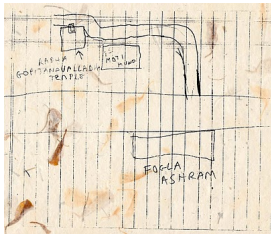 RADHA
GOPINATH VALLABH
TEMPLE
MOTI
FOGLA
ASHRAM